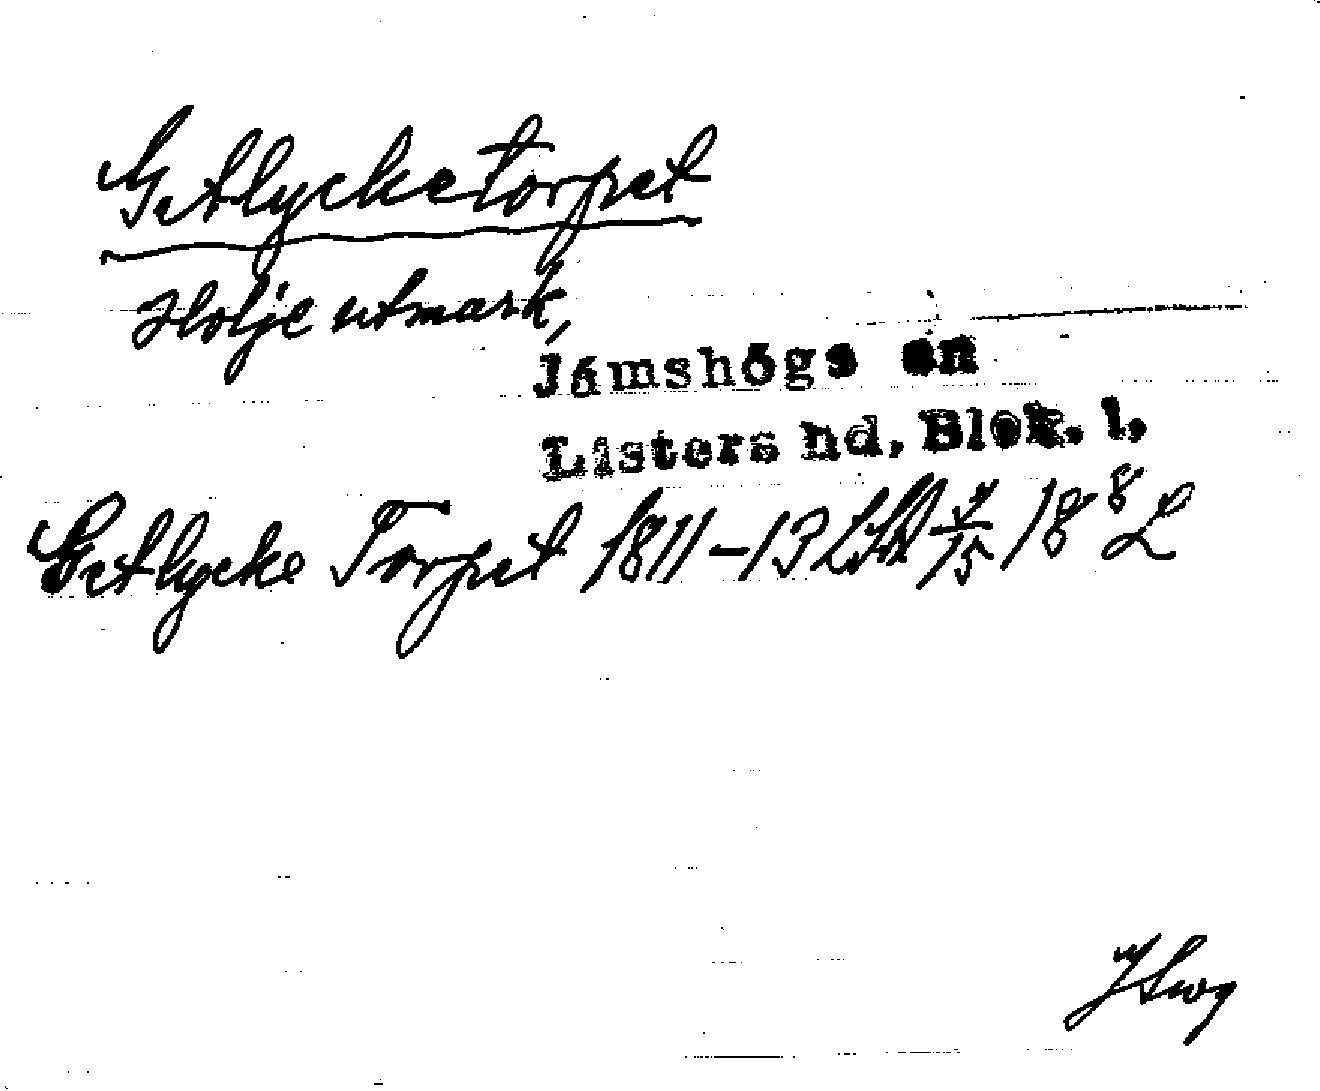 Getlycketorpet
Holje utmark,
Jämshögs sn
Listers hd, Blek. l,
Getlycke Torpet 1811-13 LSA